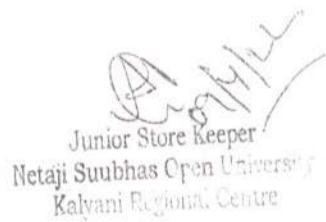 09/4/22
Junior Store Keeper
Netaji Suubhas Open University
Kalyani Regional Centre